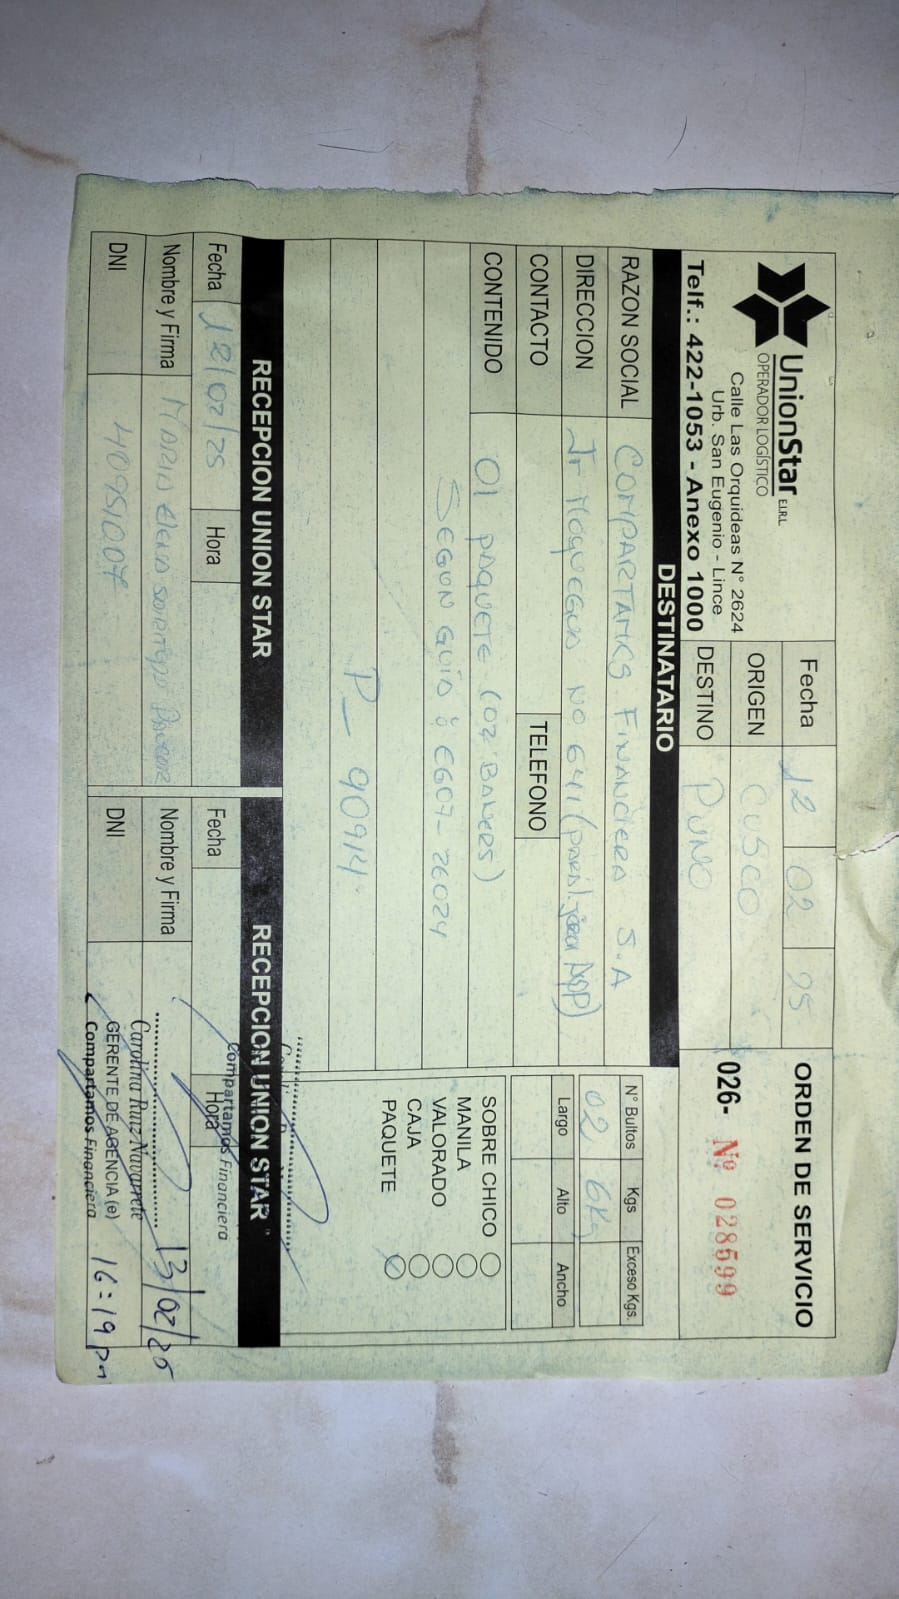 UnionStar E.I.R.L.
OPERADOR LOGÍSTICO
Calle Las Orquideas N° 2624
Urb. San Eugenio - Lince
Telf.: 422-1053 - Anexo 1000
Fecha 12 02 25
ORIGEN CUSCO
DESTINO PUNO
ORDEN DE SERVICIO
026- Nº 028599
DESTINATARIO
RAZON SOCIAL COMPARTAMOS FINANCIERA S.A
DIRECCION Jr MOQUEGUA NO 641
CONTACTO TELEFONO
CONTENIDO 01 PAQUETE (02 BANERS)
SEGUN GUIA : EG07-26024
P_ 90914
N° Bultos Kgs Exceso Kgs.
02 6Kg
Largo Alto Ancho
SOBRE CHICO
MANILA
VALORADO
CAJA
PAQUETE
RECEPCION UNION STAR
Fecha 12/02/25 Hora
Nombre y Firma MARIA
DNI 40951007
RECEPCION UNION STAR
Fecha Hora
Compartamos Financiera
Nombre y Firma
DNI
Carolina Ruiz Navarrete
GERENTE DE AGENCIA (e)
Compartamos Financiera
13/02/25
16:19 pm